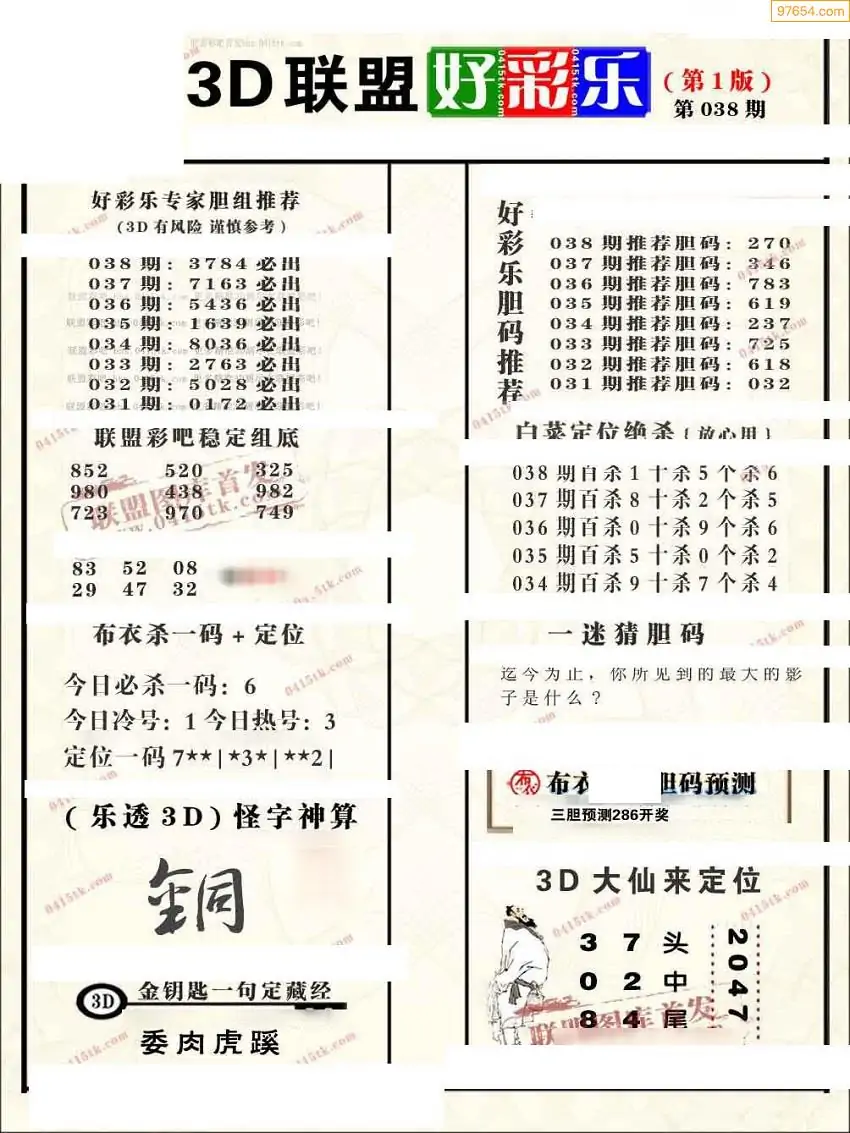 97654.com
3D联盟好彩乐
(第1版)
第038期
好彩乐专家胆组推荐
(3D有风险 谨慎参考)
038期:3784必出
037期:7163必出
036期:5436必出
035期:1639必出
034期:8036必出
033期:2763必出
032期:5028必出
031期:0172必出
联盟彩吧稳定组底
852 520 325
980 438 982
723 970 749
83 52 08
29 47 32
布衣杀一码+定位
今日必杀一码:6
今日冷号:1今日热号:3
定位一码7**|*3*|**2|
(乐透3D)怪字神算
銅
3D 金钥匙一句定藏经
委肉虎蹊
好彩乐胆码推荐
038期推荐胆码:270
037期推荐胆码:346
036期推荐胆码:783
035期推荐胆码:619
034期推荐胆码:237
033期推荐胆码:725
032期推荐胆码:618
031期推荐胆码:032
白菜定位绝杀{放心用}
038期百杀1十杀5个杀6
037期百杀8十杀2个杀5
036期百杀0十杀9个杀6
035期百杀5十杀0个杀2
034期百杀9十杀7个杀4
一迷猜胆码
迄今为止,你所见到的最大的影
子是什么?
布衣 胆码预测
三胆预测286开奖
3D大仙来定位
3 7头
0 2中
8 4尾
2047
联盟图库首发
www.0415tk.com
0415tk.com